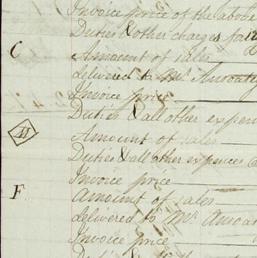 Invoice price of the above
Duties & other charges for
C
Amount of sales
delivered to Mr.
Invoice price
Duties & all other expen
Amount of sales
Duties & all other expences
Invoice price
F
Amount of sales
delivered to Mr.
Invoice price